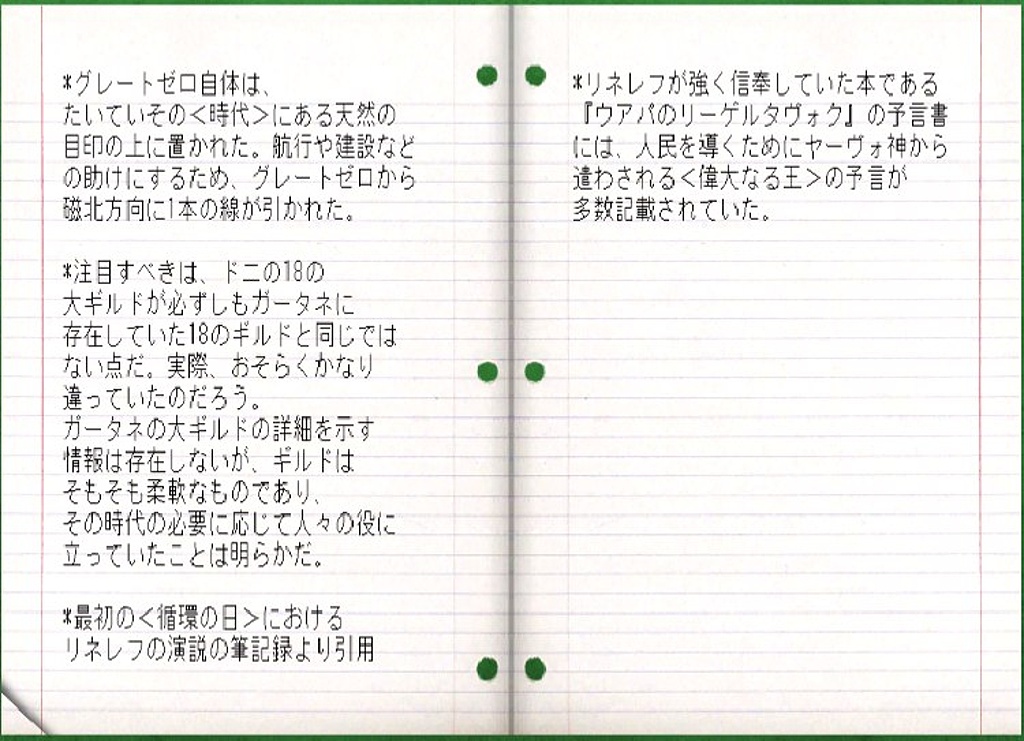 *グレートゼロ自体は、
たいていその<時代>にある天然の
目印の上に置かれた。航行や建設など
の助けにするため、グレートゼロから
磁北方向に1本の線が引かれた。
*注目すべきは、ドニの18の
大ギルドが必ずしもガータネに
存在していた18のギルドと同じでは
ない点だ。実際、おそらくかなり
違っていたのだろう。
ガータネの大ギルドの詳細を示す
情報は存在しないが、ギルドは
そもそも柔軟なものであり、
その時代の必要に応じて人々の役に
立っていたことは明らかだ。
*最初の<循環の日>における
リネレフの演説の筆記録より引用
*リネレフが強く信奉していた本である
『ウアパのリーゲルタヴォク』の予言書
には、人民を導くためにヤーヴォ神から
遣わされる<偉大なる王>の予言が
多数記載されていた。